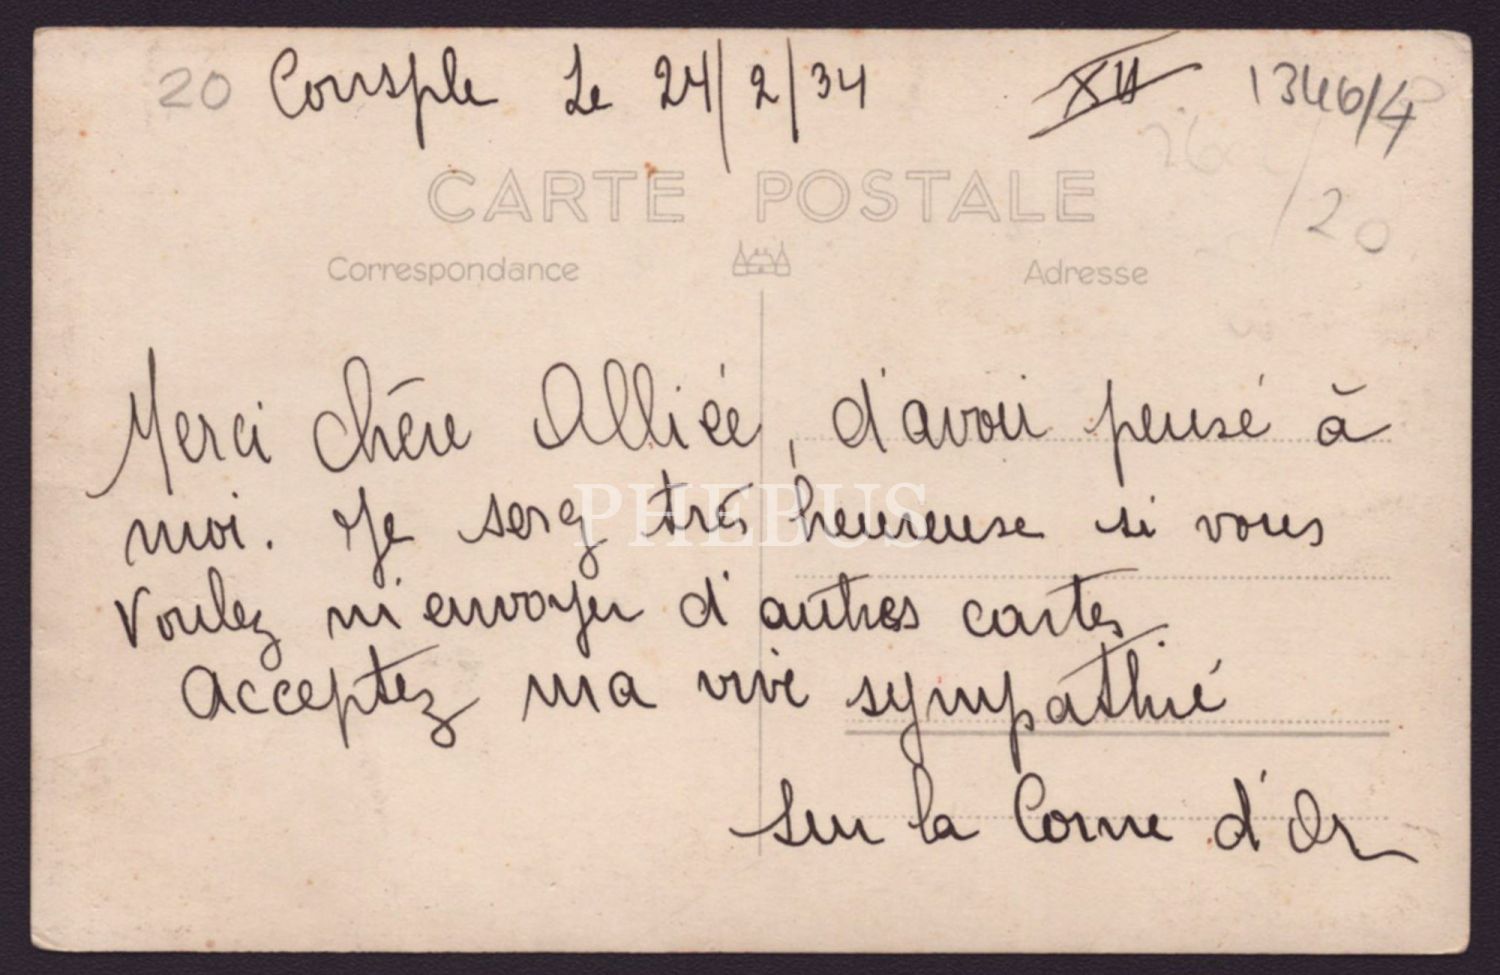 20 Consple Le 24/2/34 XII 1346/4
20
CARTE POSTALE
Correspondance Adresse
Merci chère Alliée, d'avoir pensé à
moi. Je serez très heureuse si vous
PHEBUS
Voulez m'envoyer d'autres cartes
Acceptez ma vive sympathié
Sur la Corne d'Or